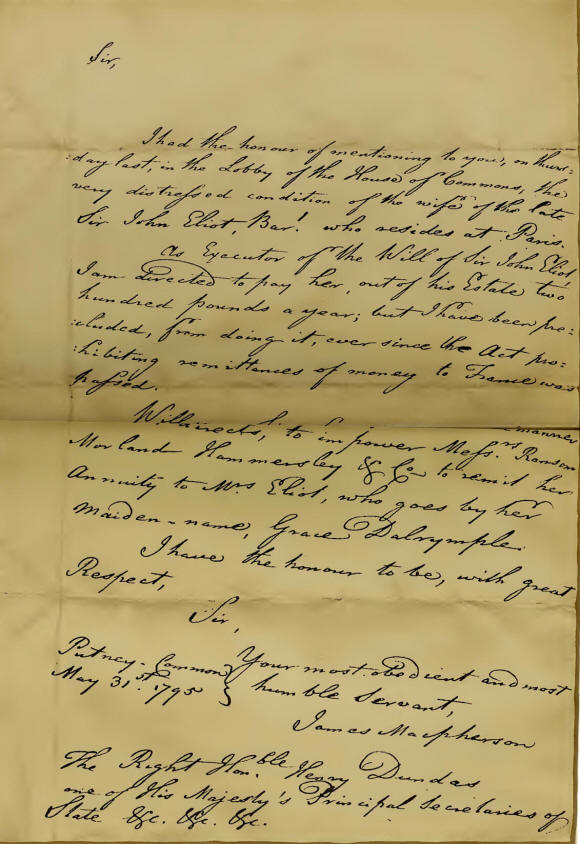 Sir,
I had the honour of mentioning to you, on thurs=
:day last, in the Lobby of the House of Commons, the
very distressed condition of the wife of the late
Sir John Eliot, Bar.t who resides at Paris.
As Executor of the Will of Sir John Eliot
I am directed to pay her, out of his Estate two
hundred pounds a year; but I have been pre=
:cluded, from doing it, ever since the Act pro=
:hibiting remittances of money to France was
passed.
manner
to impower Mess.rs Ransom
Morland Hammersley & Co. to remit her
Annuity to Mrs Eliot, who goes by her
maiden-name, Grace Dalrymple.
I have the honour to be, with great
Respect,
Sir,
Your most obedient and most
humble Servant,
James Macpherson
Putney-Common
May 31.st 1795
The Right Hon.ble Henry Dundas
one of His Majesty's Principal Secretaries of
State &c. &c. &c.